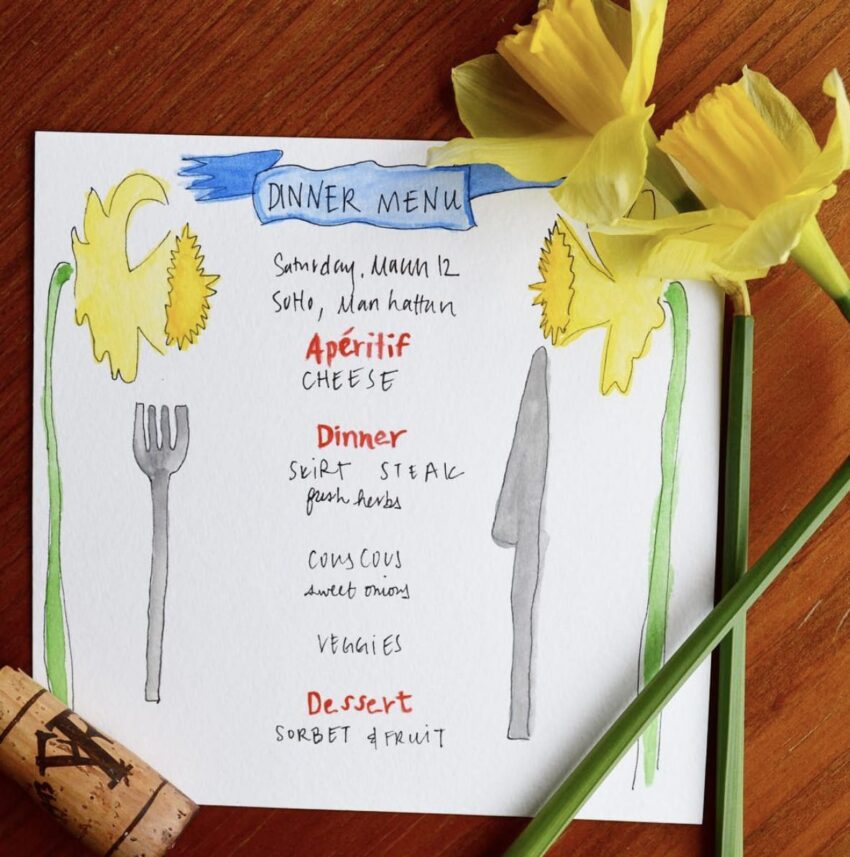 DINNER MENU
Saturday, March 12
SoHo, Manhattan
Apéritif
CHEESE
Dinner
SKIRT STEAK
fresh herbs
COUSCOUS
sweet onions
VEGGIES
Dessert
SORBET & FRUIT